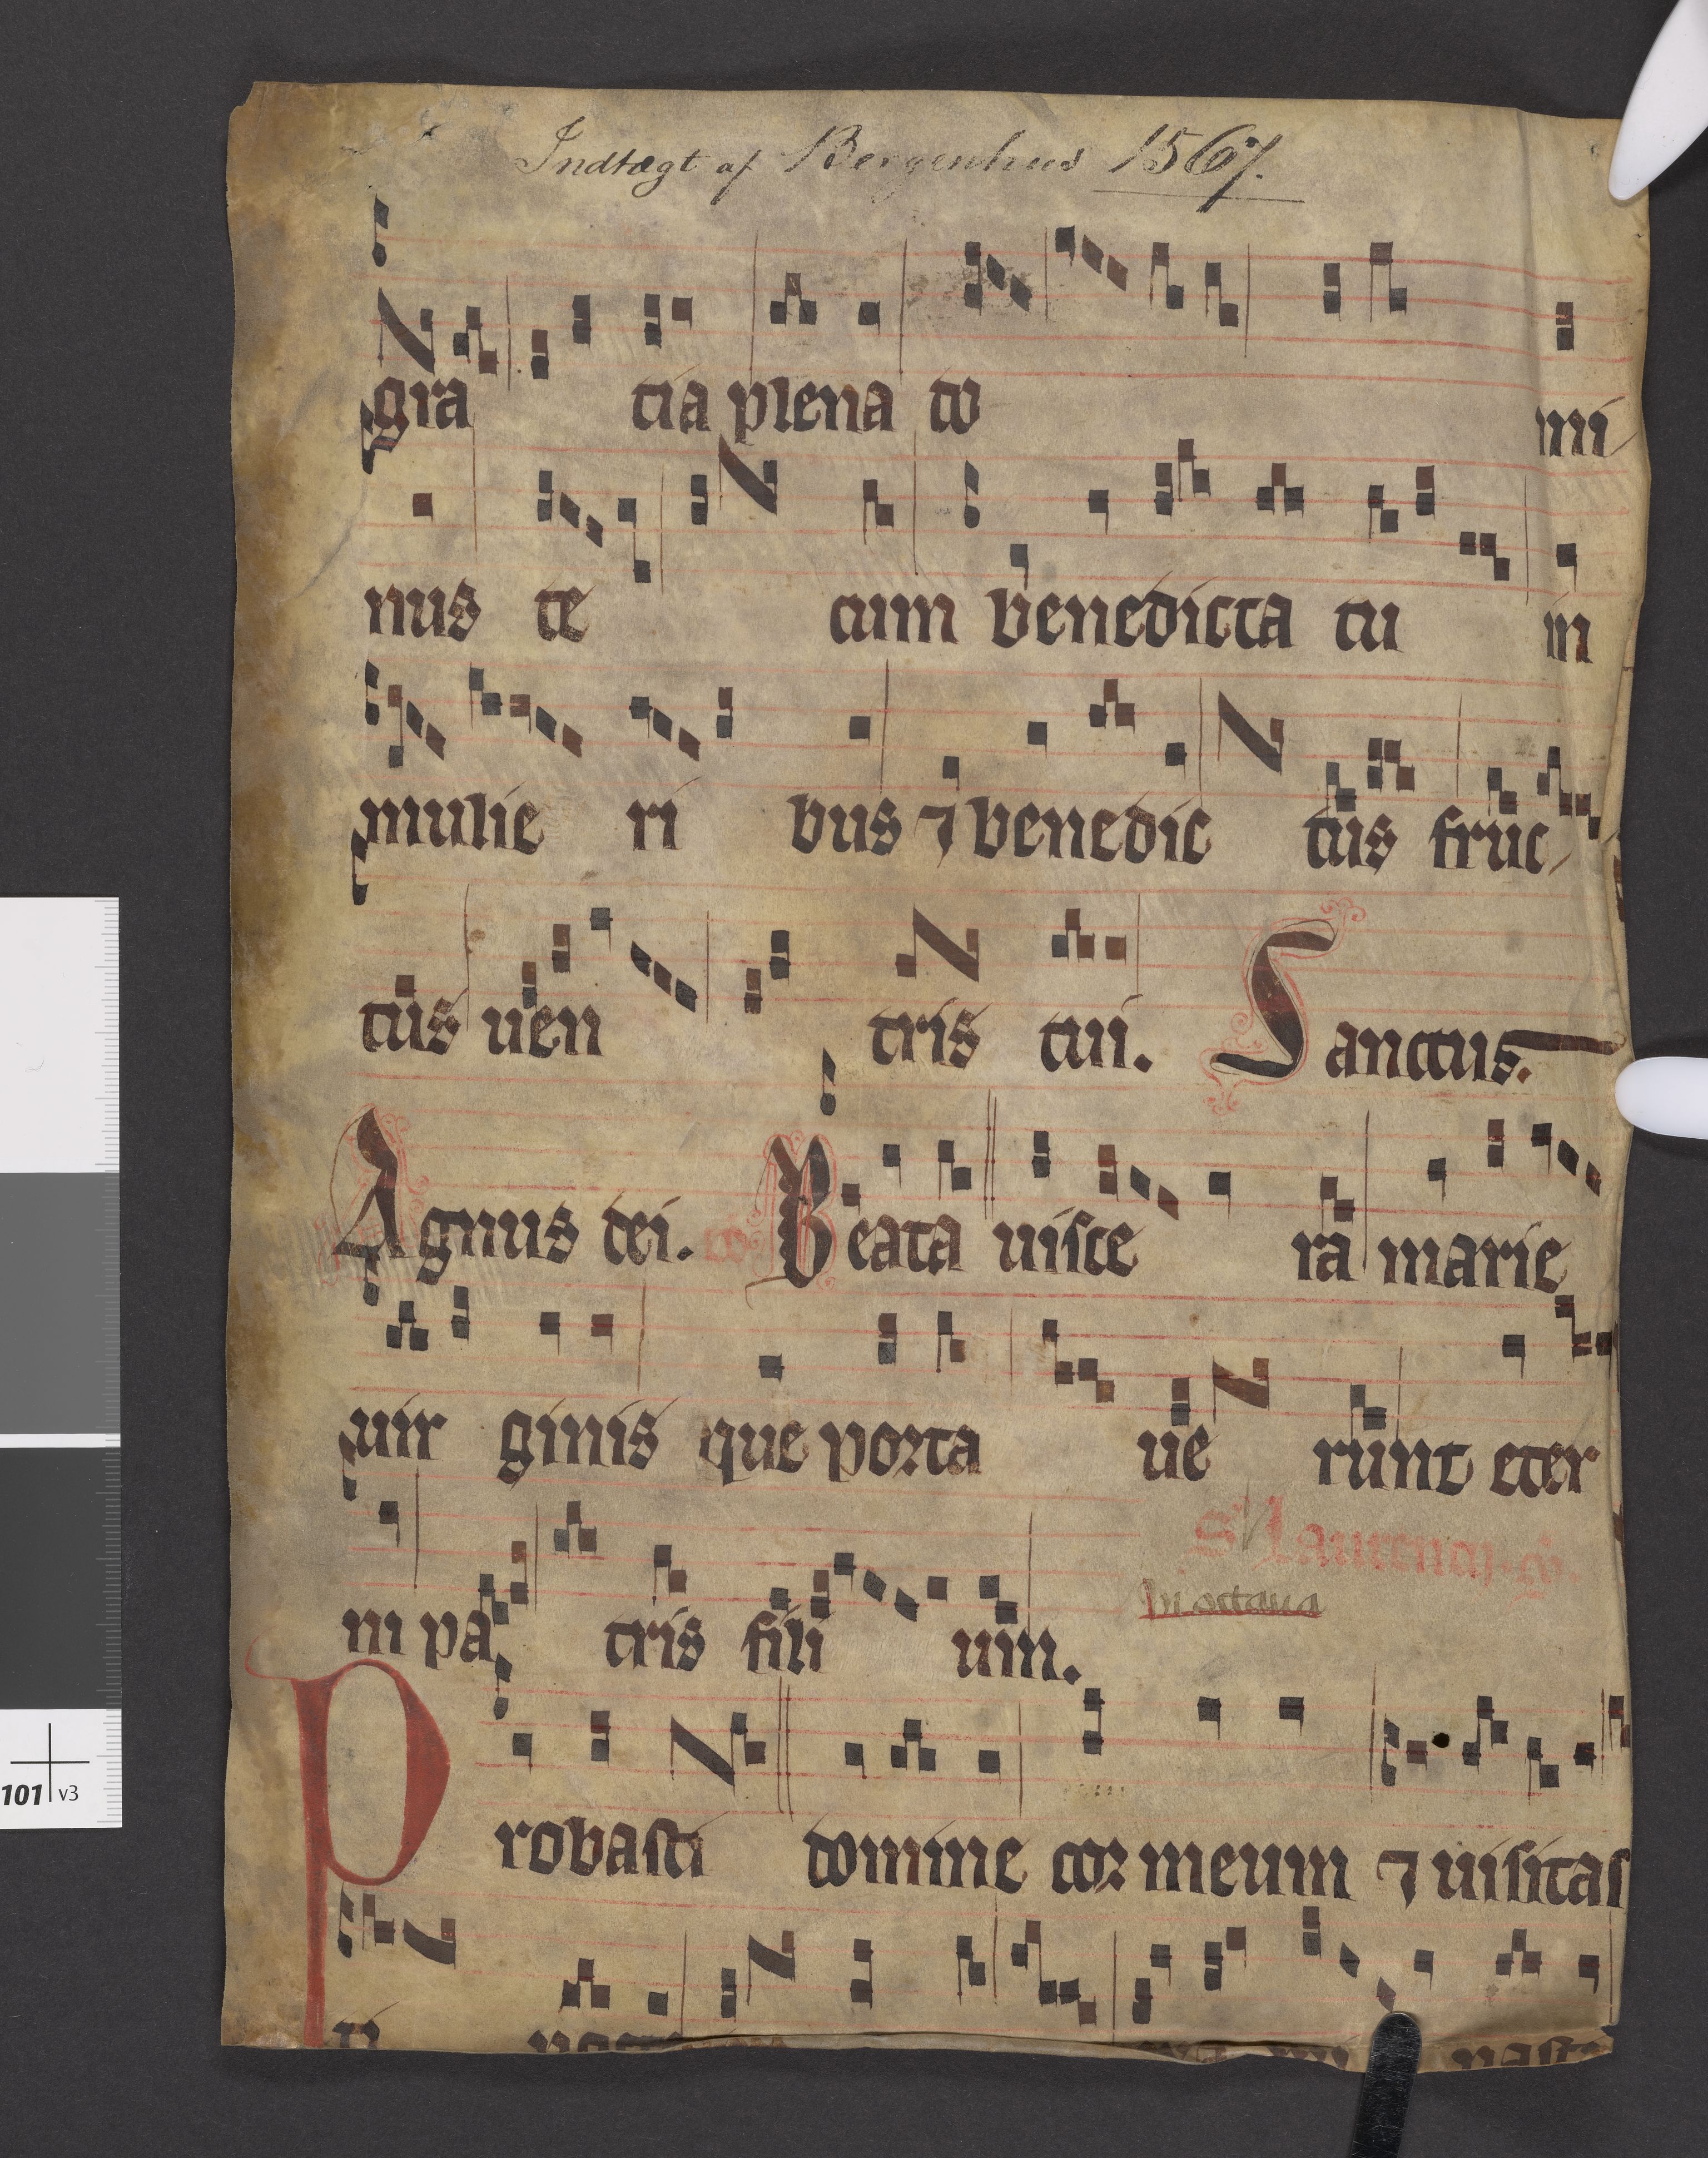 Indtægt af Bergenhus 1567.
gra tia plena do mi
nus te cum benedicta tu in
mulie ri bus ⁊ benedic tus fruc
tus uen tris tui. Sanctus.
Agnus dei. co Beata uisce ra marie
uir ginis que porta ue runt eter
ni pa tris fili um.
S' laurencij.
In octaua
Probasti domine cor meum ⁊ uisitas
ti
101 v3